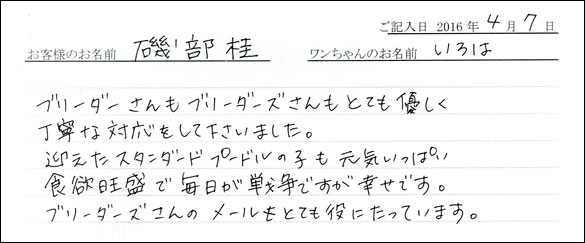 ご記入日 2016年4月7日
お客様のお名前 磯部桂 ワンちゃんのお名前 いろは
ブリーダーさんもブリーダーズさんもとても優しく
丁寧な対応をして下さいました。
迎えたスタンダードプードルの子も元気いっぱい
食欲旺盛で毎日が戦争ですが幸せです。
ブリーダーズさんのメールもとても役にたっています。